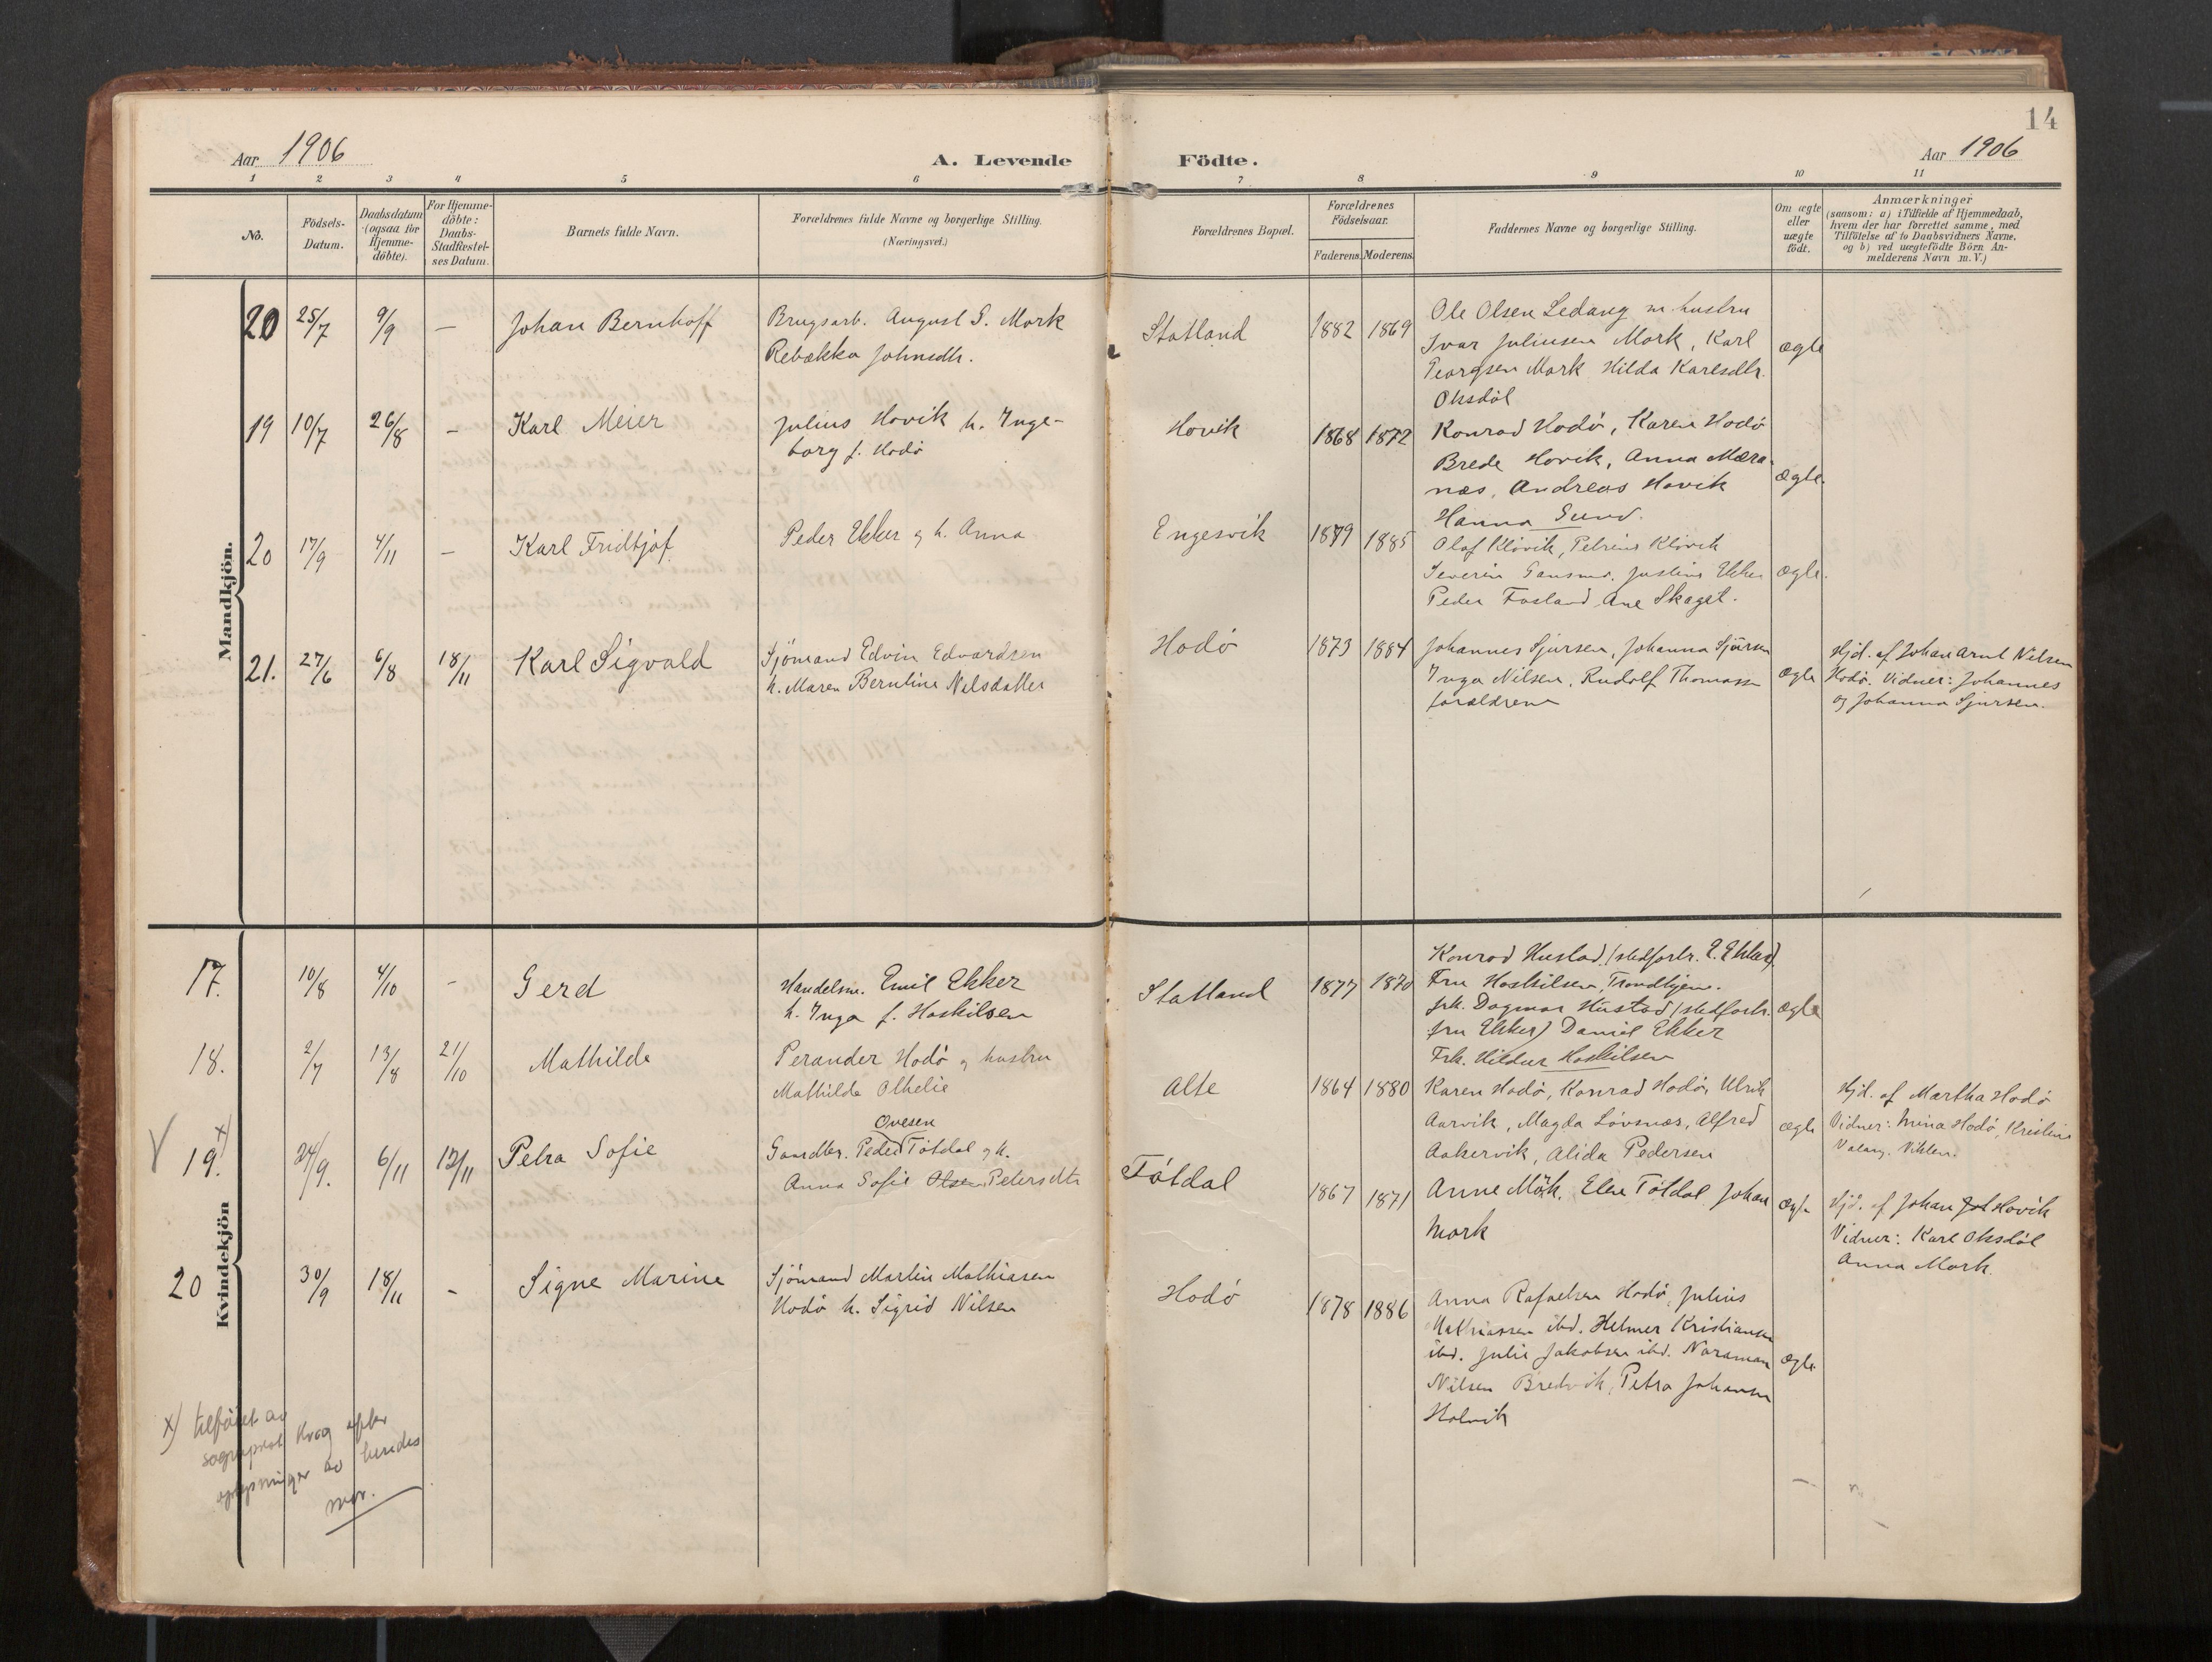 14
Aar 1906
A. Levende
Födte.
Aar 1906
1 2 3 4 5 6 7 8 9 10 11
No.
Födsels-
Datum.
Daabsdatum
(ogsaa for
Hjemme-
döbte).
For Hjemme-
döbte:
Daabs-
Stadfæstel-
ses Datum.
Barnets fulde Navn.
Forældrenes fulde Navne og borgerlige Stilling.
(Næringsvei.)
Forældrenes Bopæl.
Forældrenes
Födselsaar.
Faderens. Moderens.
Faddernes Navne og borgerlige Stilling.
Om ægte
eller
uægte
födt.
Anmærkninger
(saasom: a) i Tilfælde af Hjemmedaab,
hvem der har forrettet samme, med
Tilföielse af to Daabsvidners Navne,
og b) ved uægtefödte Börn An-
melderens Navn m. V.)
Mandkjön.
20 25/7 9/9 — Johan Bernhoff
Brugsarb. August S. Mork
Rebekka Johnsdtr.
Statland 1882 1869
Ole Olsen Ledang m hustru
Ivar Juliussen Mork, Karl
Georgsen Mork Hilda Karlsdtr.
Oksdöl
ægte
19 10/7 26/8 – Karl Meier
Julius Hovik h. Inge-
borg f. Hodö
Hovik 1868 1872
Konrad Hodö, Karen Hodö
Brede Hovik, Anna Mæra-
næs, Andreas Hovik
Hanna Sund.
ægte.
20 17/9 4/11 – Karl Fridtjof
Peder Ekker og h. Anna
Engesvik 1879 1885
Olaf Klövik, Petrine Klövik
Severin Gansmo, Justine Ekker
Peder Fosland, Ane Skaget.
ægte.
21. 27/6 6/8 18/11 Karl Sigvald
Sjömand Edvin Edvardsen
h. Maren Berntine Nilsdatter
Hodö 1873 1884
Johannes Sjursen, Johanna Sjursen
Inga Nilsen, Rudolf Thomassen
forældrene
ægte
Hjd. af Johan Arnt Nilsen
Hodö. Vidner: Johannes
og Johanna Sjursen.
Kvindekjön
17. 10/8 4/10 – Gerd
Handelsm. Emil Ekker
h. Inga f. Hoskilsen
Statland 1877 1870
Konrad Hustad (stedfortr. E. Ekker).
Fru Hoskilsen, Trondhjem.
frk. Dagmar Hustad (stedfortr.
fru Ekker) Daniel Ekker
Frk. Hildur Hoskilsen
ægte
18. 2/7 13/8 21/10 Mathilde
Perander Hodö og hustru
Mathilde Othelie
Alte 1864 1880
Karen Hodö, Konrad Hodö, Ulrik
Aarvik, Magda Lövsnæs, Alfred
Aakervik, Alida Pedersen
ægte
Hjd. af Martha Hodö
Vidner: Mina Hodö, Kristine
19. x) 24/9. 6/11 12/11 Petra Sofie
Ovesen
Gaardbr. Peder Tötdal og h.
Anna Sofie Olsen Petersdtr
Tötdal 1867 1871
Anne Mörk, Elen Tötdal Johan
Mork
ægte
Hjd. af Johan Hovik
Vidner: Karl Oksdöl
Anna Mork.
20 30/9 18/11 – Signe Marine
Sjömand Martin Mathiasen
Hodö h. Sigrid Nilsen
Hodö 1878 1886
Anna Rafaelsen Hodö, Julius
Mathiassen ibd. Helmer Kristiansen
ibd. Julie Jakobsen ibd. Naraman
Nilsen Bredvik, Petra Johansen
Holvik
ægte
x) tilföiet av
sogneprest Krog efter
oplysninger av hendes
mor.